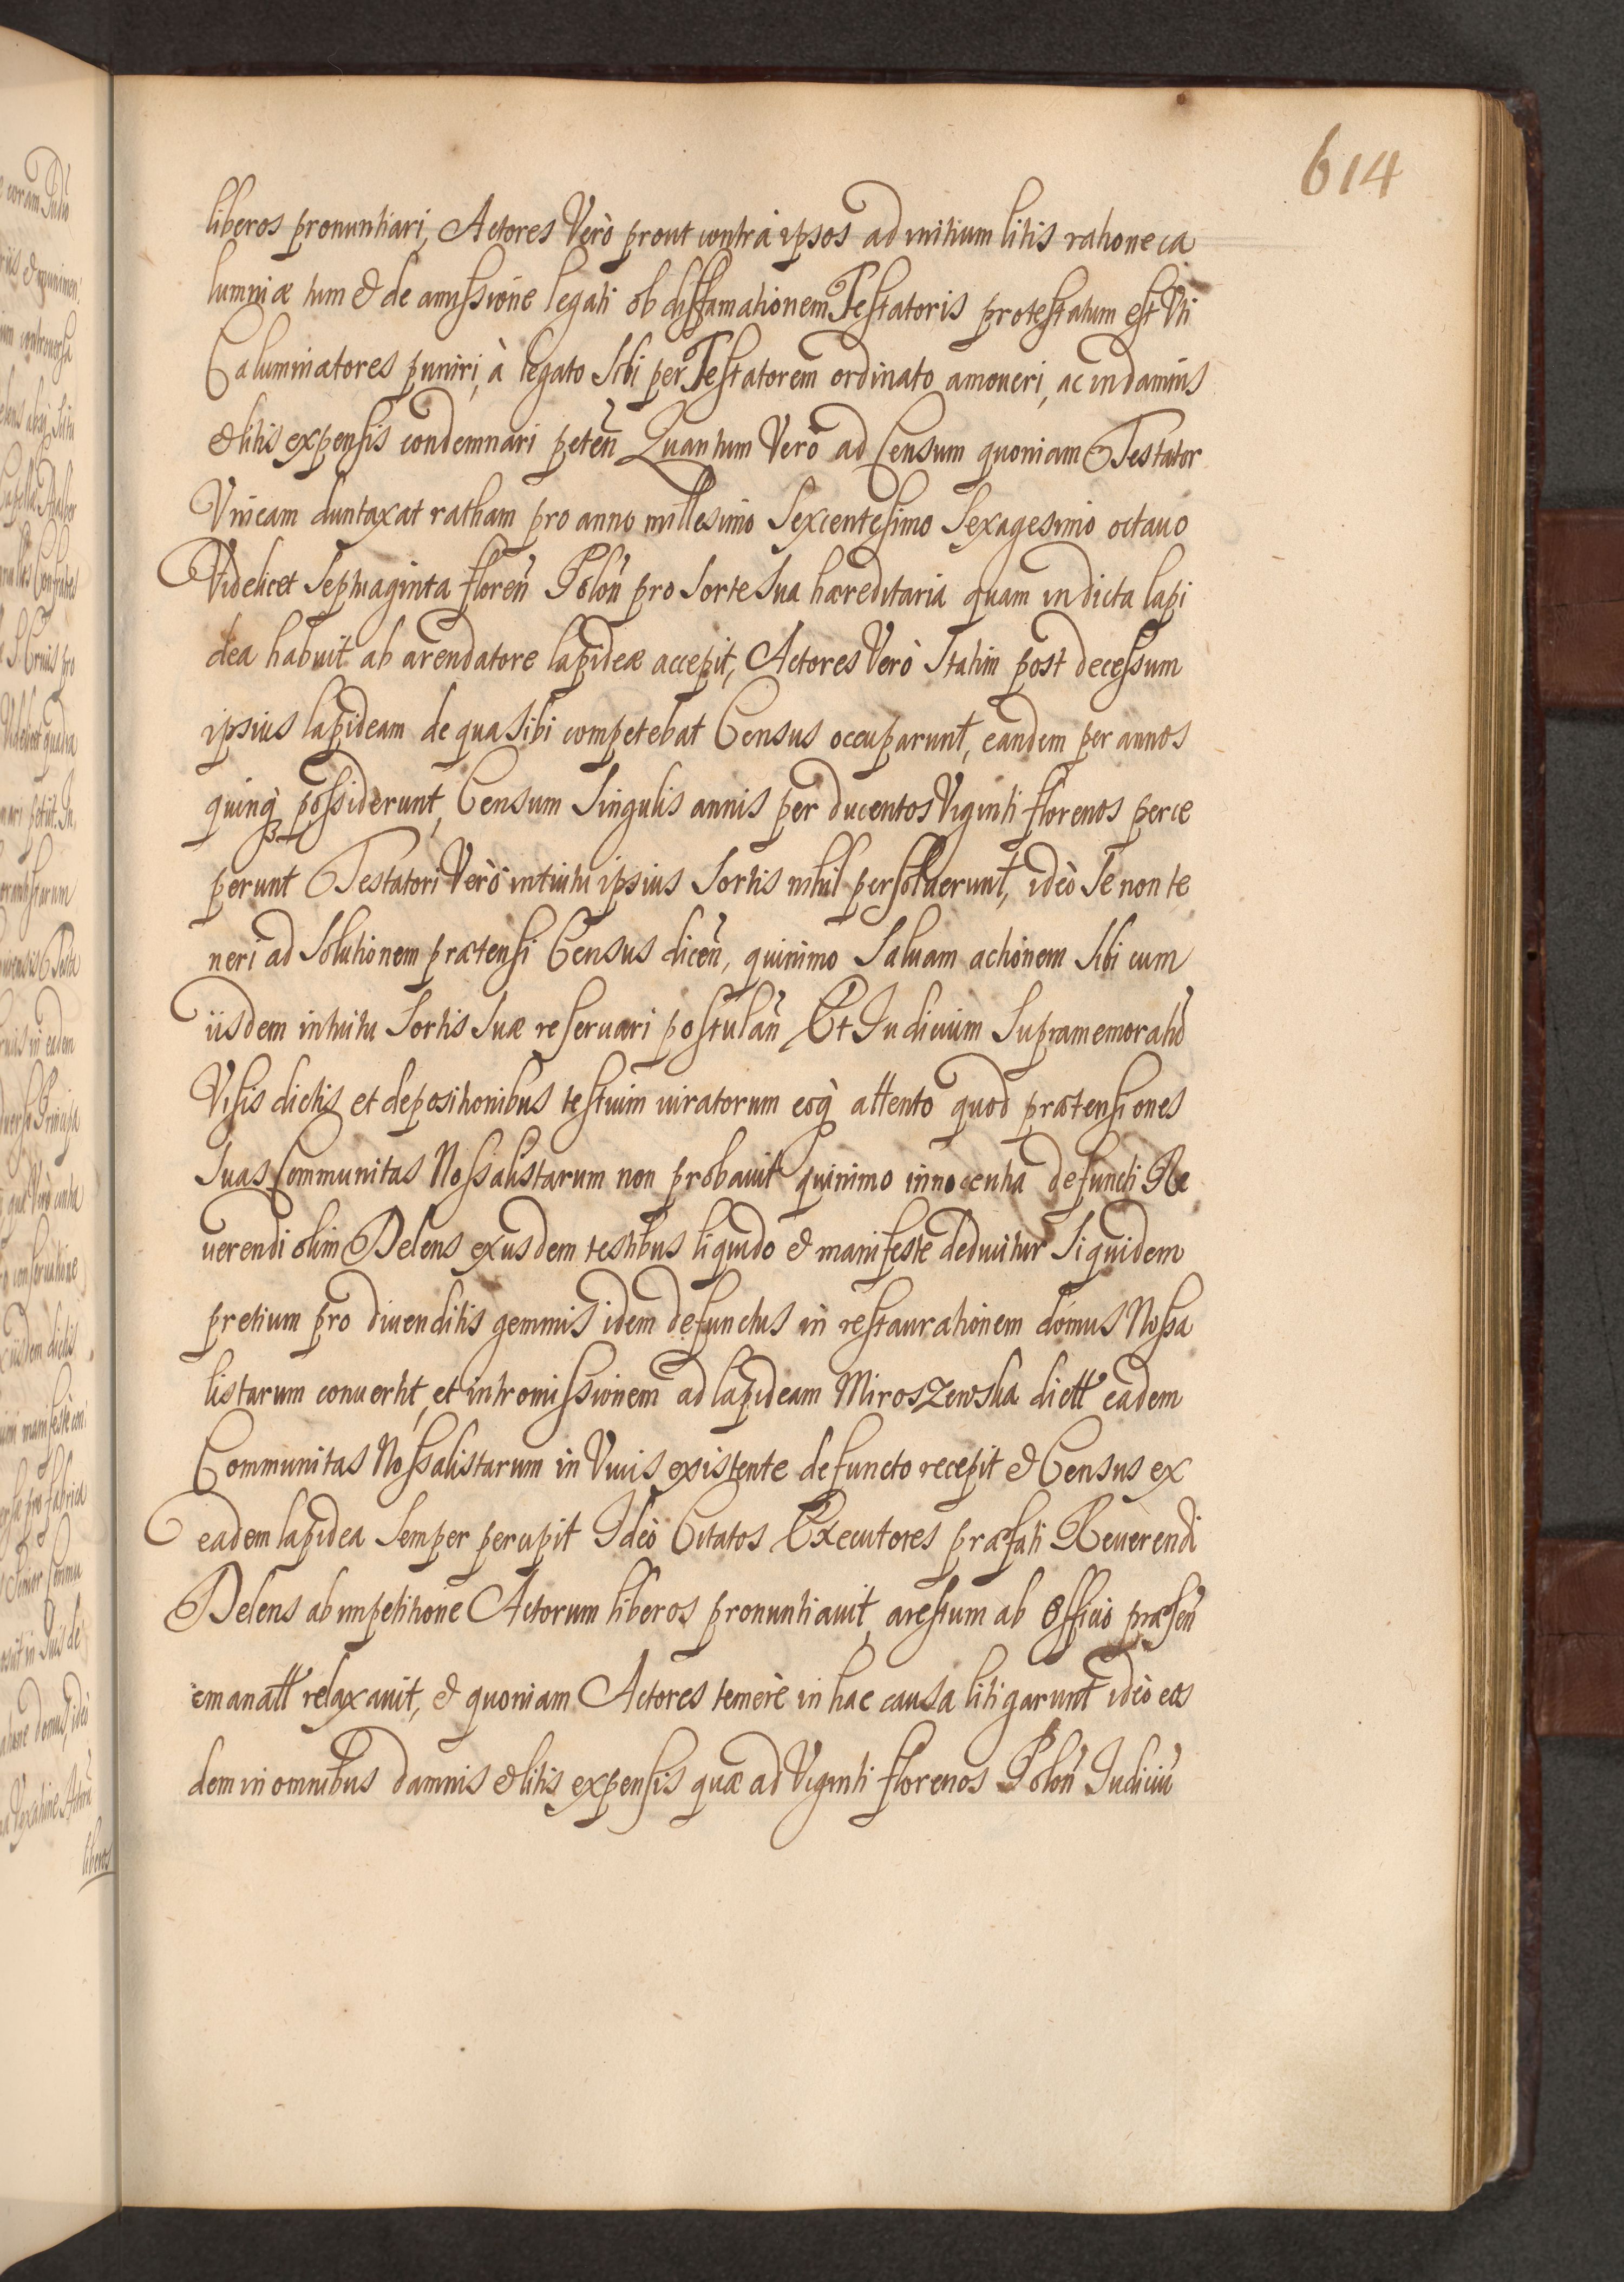 614
liberos pronuntiari, Actores Verò prout contra ipsos ad initium litis ratione ca
lumniæ tum & de amissione legati ob diffamationem Testatoris protestatum est Vti
Caluminatores puniri, à legato Sibi per Testatorem ordinato amoueri, ac in damnis
& litis expensis condemnari peteñ Quantum Verò ad Censum quoniam Testator
Vnicam duntaxat ratham pro anno millesimo Sexcentesimo Sexagesimo octauo
Videlicet Septuaginta floreñ Poloñ pro Sorte Sua hæreditaria quam in dicta lapi
dea habuit ab arendatore lapideæ accepit, Actores Verò Statim post decessum
ipsius lapideam de qua Sibi competebat Census occuparunt, eandem per annos
quinq̀ possiderunt, Censum Singulis annis per ducentos Viginti florenos perce
perunt Testatori Verò intuitu ipsius Sortis nihil persoluerunt, ideò Se non te
neri ad Solutionem prætensi Census diceñ, quinimo Saluam actionem Sibi cum
iisdem intuitu Sortis Suæ reseruari postulañ Et Iudicium Supramemoratũ
Visis dictis et depositionibus testium iuratorum eoq̀ attento quod prætensiones
Suas Communitas Nossalistarum non probauit quinimo innocentia defuncti Re
uerendi olim Delens exusdem testibus liquido & manifeste deducitur Siquidem
pretium pro diuenditis gemmis idem defunctus in restaurationem domus Nossa
listarum conuertit, et intromissionem ad lapideam Miroszewska dictt eadem
Communitas Nossalistarum in Viuis existente defuncto recepit & Census ex
eadem lapidea Semper percipit Ideò Citatos Executores præfati Reuerendi
Delens ab impetitione Actorum liberos pronuntiauit, arestum ab Officio præseñ
emanatt relaxauit, & quoniam Actores temerè in hac causa litigarunt ideò eos
dem in omnibus damnis & litis expensis quæ ad Viginti florenos Poloñ Iudiciũ
liberos